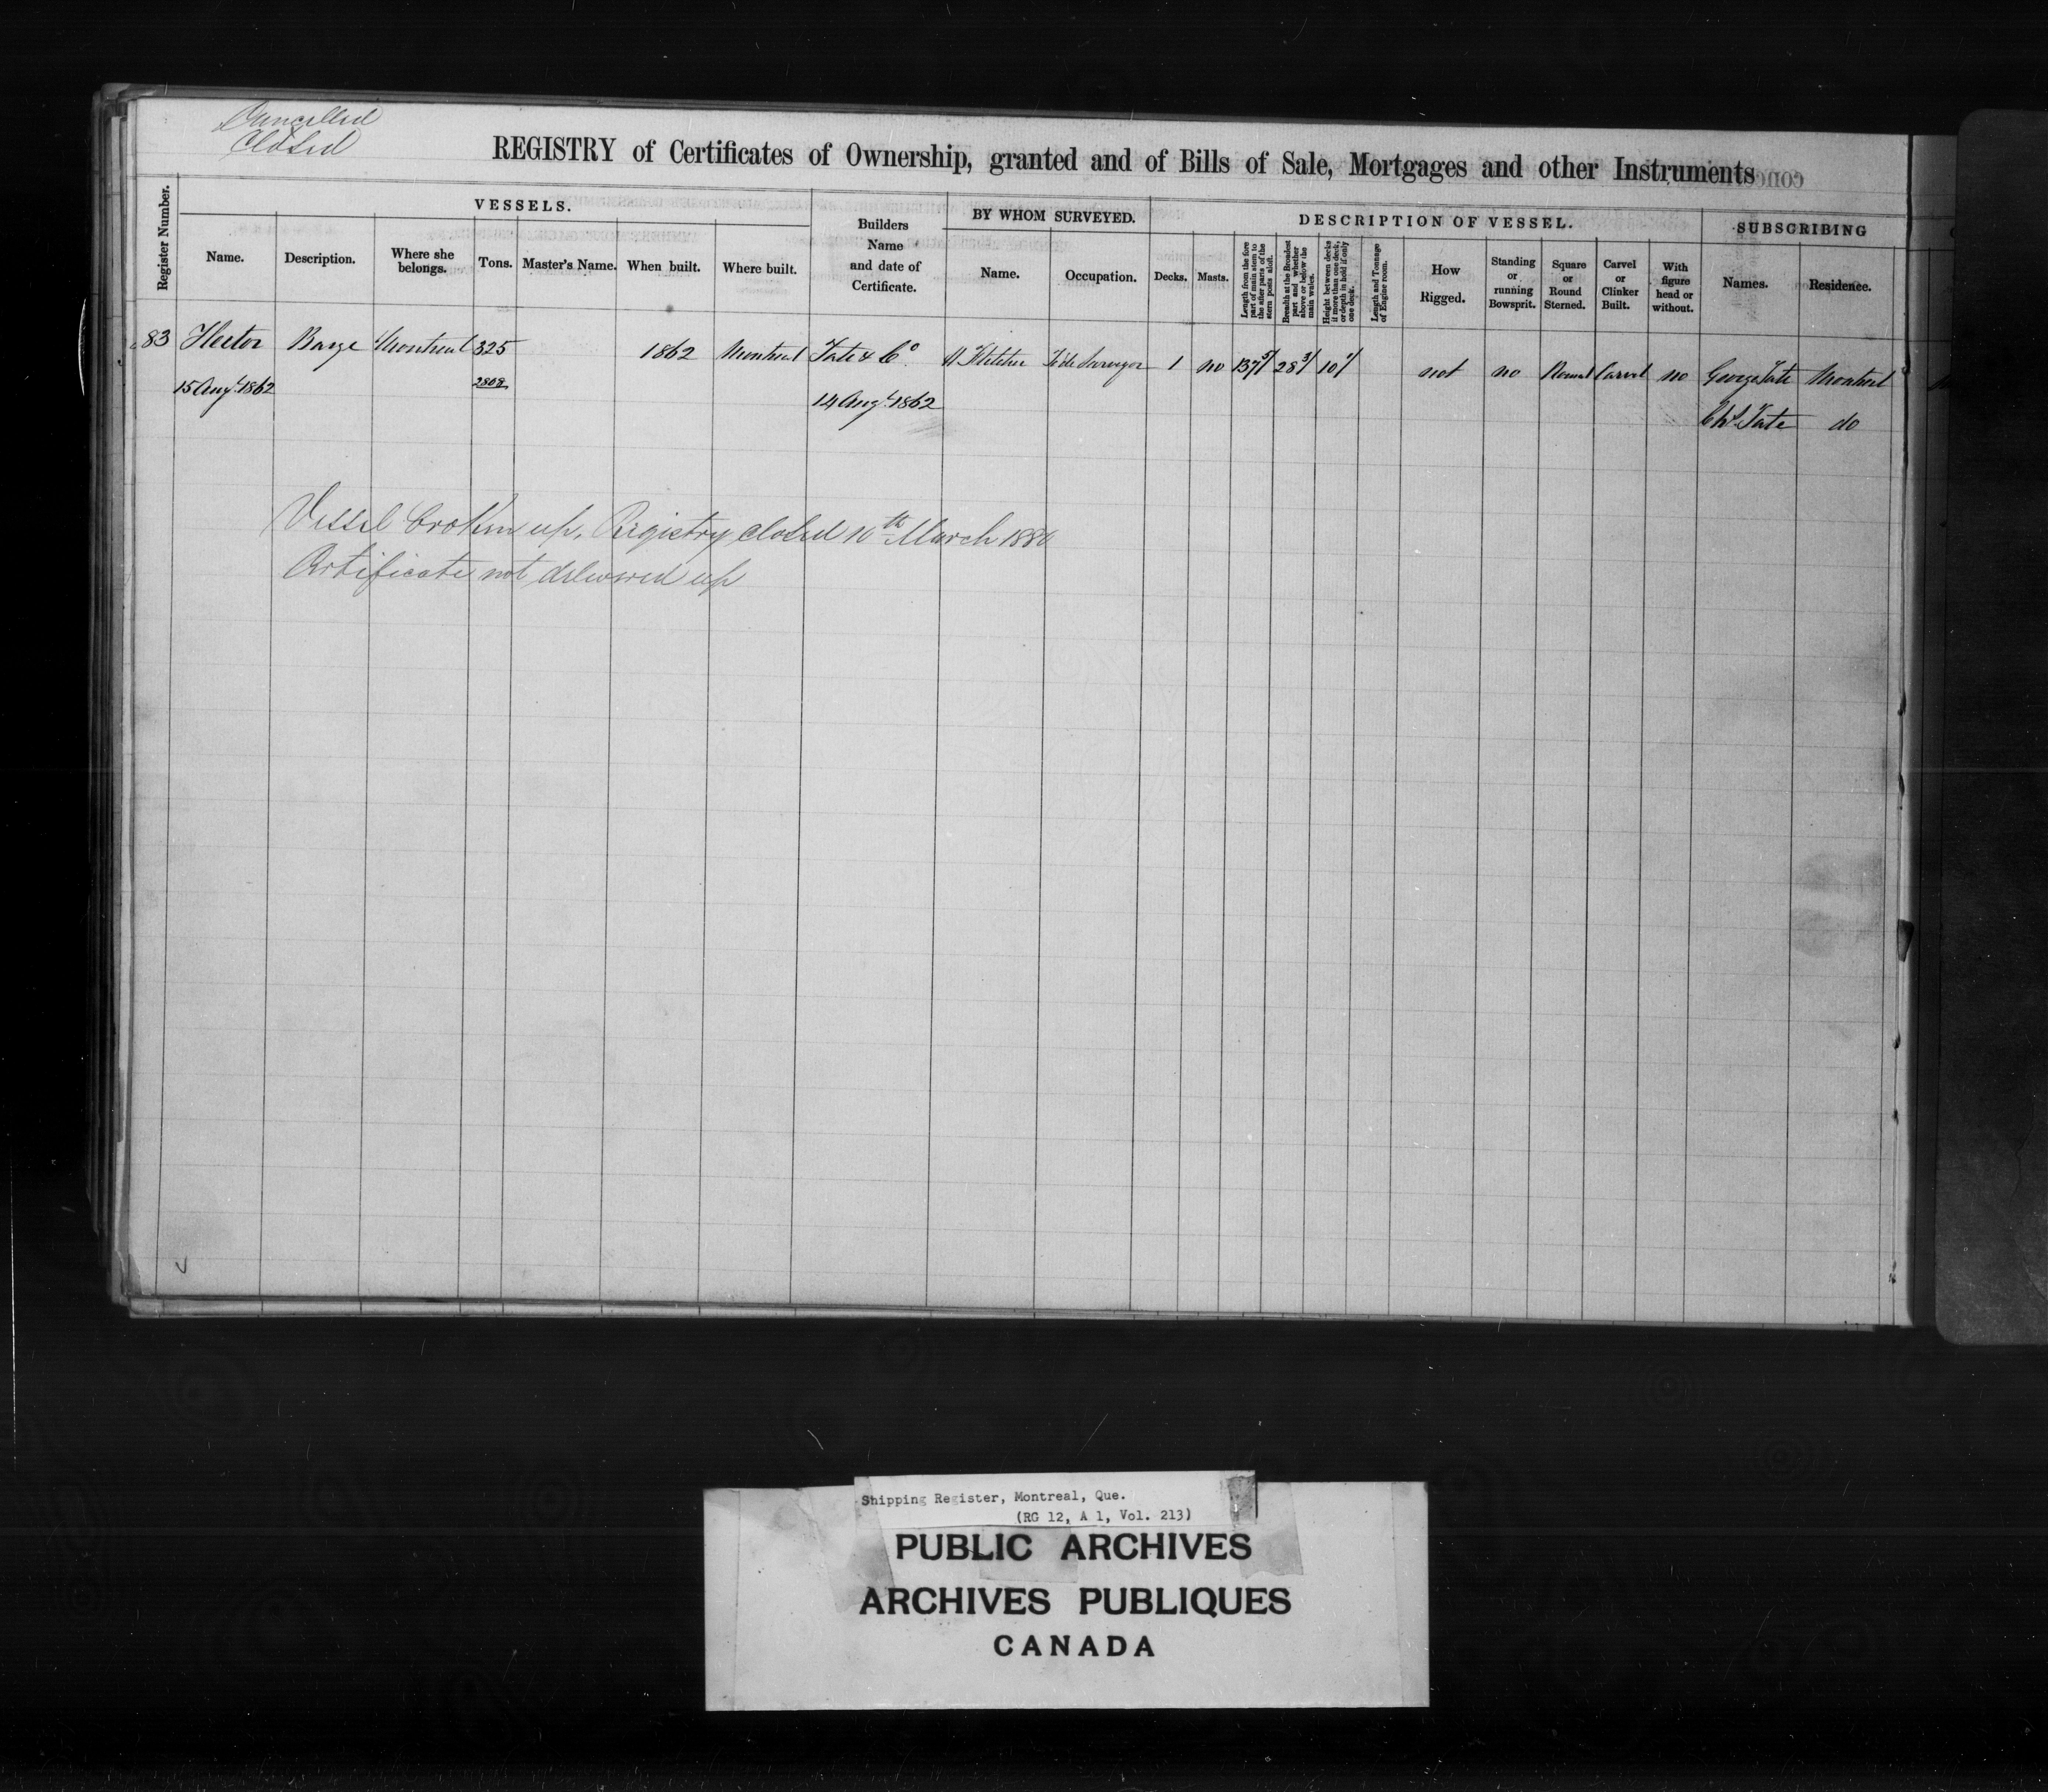 Cancelled
Closed
REGISTRY of Certificates of Ownership, granted and of Bills of Sale, Mortgages and other Instruments
Register Number.
VESSELS.
Name.
Description.
Where she belongs.
Tons.
Master's Name.
When built.
Where built.
Builders Name and date of Certificate.
BY WHOM SURVEYED.
Name.
Occupation.
DESCRIPTION OF VESSEL.
Decks.
Masts.
Length from the fore part of main stem to the after parts of the stern posts aloft.
Breadth at the Broadest part and whether above or below the main wales.
Height between decks if more than one deck, or depth in hold if only one deck.
Length and Tonnage of Engine room.
How Rigged.
Standing or running Bowsprit.
Square or Round Sterned.
Carvel or Clinker Built.
With figure head or without.
SUBSCRIBING
Names.
Residence.
83 Hector Barge Montreal 325 1862 Montreal Tate & Co. Fletcher Surveyor 1 no 137 5/ 28 3/ 10 1/ not no Round Carvel no George Tate Montreal
15 Augt. 1862 2808 14 Augt. 1862 Chs. Tate do
Vessel broken up, Registry closed 10th March 1880
Certificate not delivered up
Shipping Register, Montreal, Que.
(RG 12, A 1, Vol. 213)
PUBLIC ARCHIVES
ARCHIVES PUBLIQUES
CANADA